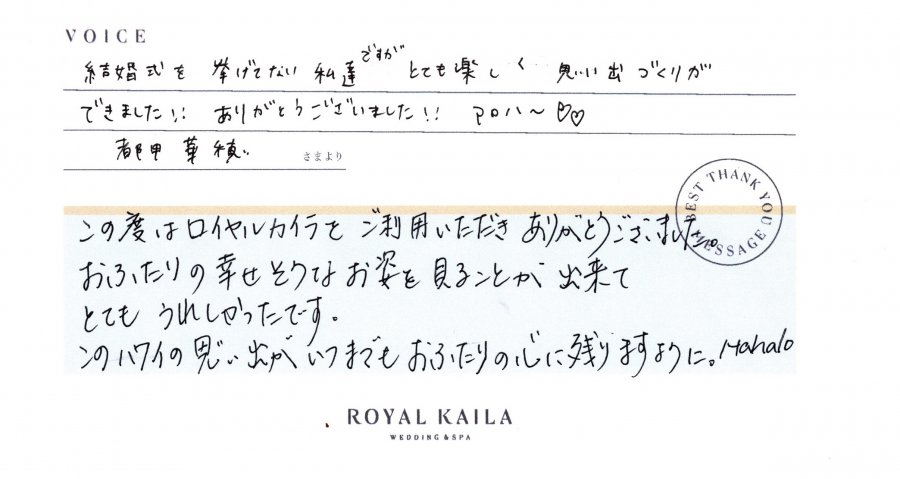 VOICE
結婚式を挙げてない私達ですがとても楽しく 思い出づくりが
できました!! ありがとうございました!! アロハ〜♡♡
都甲 華穂 さまより
BEST THANK YOU MESSAGE
この度はロイヤルカイラをご利用いただきありがとうございました。
おふたりの幸せそうなお姿を見ることが出来て
とてもうれしかったです。
このハワイの思い出がいつまでもおふたりの心に残りますように。Mahalo
ROYAL KAILA
WEDDING & SPA